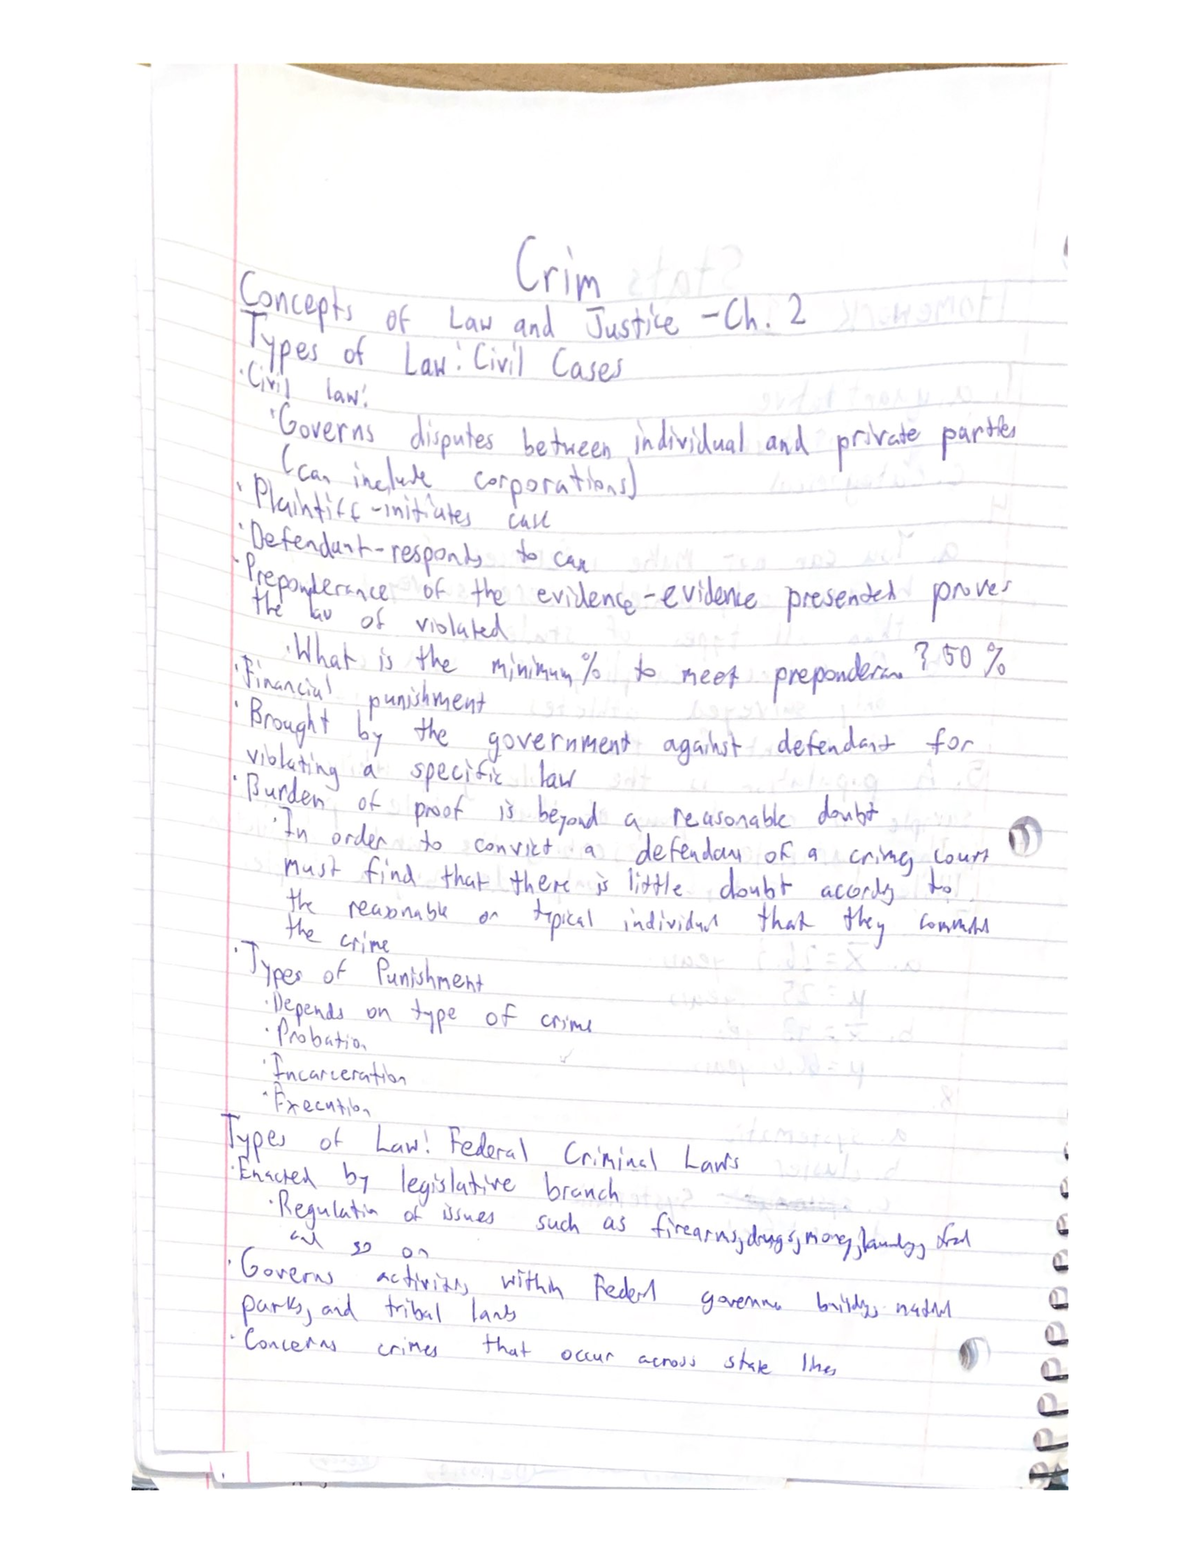 Crim
Concepts of Law and Justice - Ch. 2
Types of Law: Civil Cases
· Civil law:
· Governs disputes between individual and private parties
(can include corporations)
· Plaintiff - initiates case
· Defendant - responds to case
· Preponderance of the evidence - evidence presented proves
the law of violated
· What is the minimum % to meet preponderance? 50%
· Financial punishment
· Brought by the government against defendant for
violating a specific law
· Burden of proof is beyond a reasonable doubt
· In order to convict a defendant of a crime, court
must find that there is little doubt acordg to
the reasonable or typical individual that they commited
the crime
· Types of Punishment
· Depends on type of crime
· Probation
· Incarceration
· Execution
Types of Law: Federal Criminal Laws
· Enacted by legislative branch
· Regulation of issues such as firearms, drugs, money laundry, fraud
and so on
· Governs activities within Federal governme buildgs, nationl
parks, and tribal lands
· Concerns crimes that occur across state lines